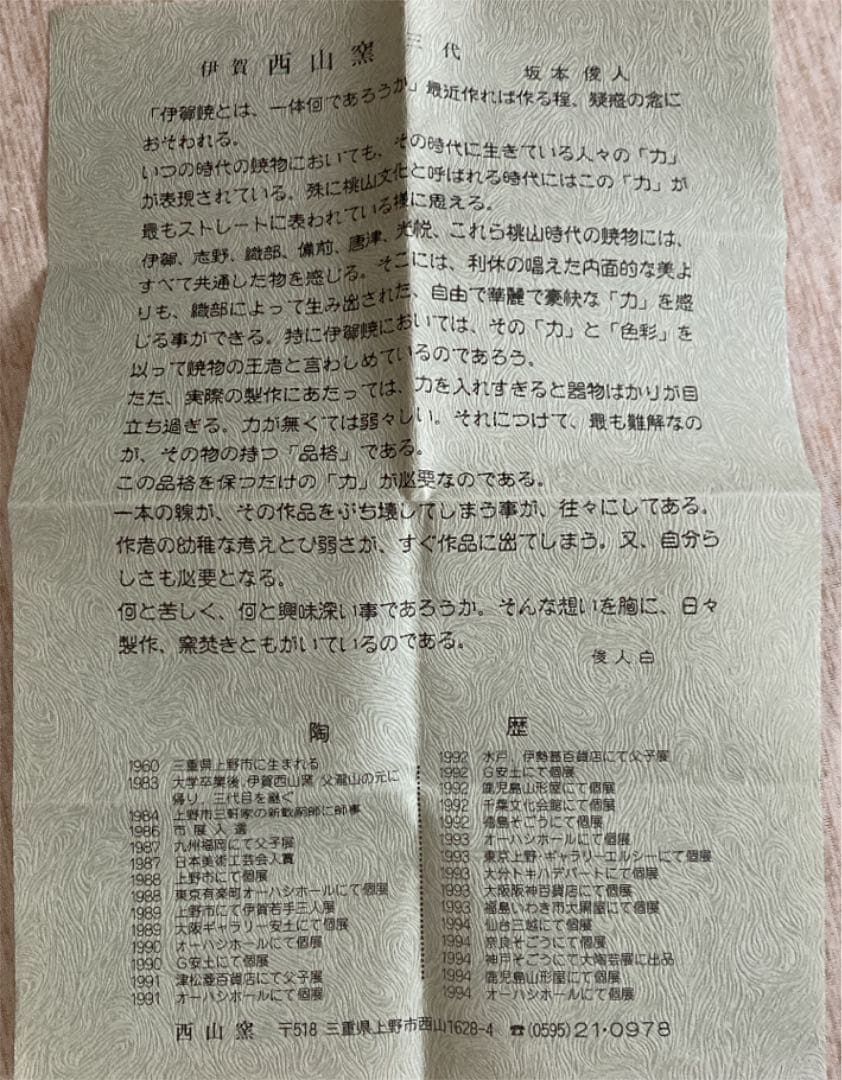 伊賀 西山窯 三代
坂本俊人
「伊賀焼とは、一体何であろうか」最近作れば作る程、疑惑の念に
おそわれる。
いつの時代の焼物においても、その時代に生きている人々の「力」
が表現されている。殊に桃山文化と呼ばれる時代にはこの「力」が
最もストレートに表われている様に思える。
伊賀、志野、織部、備前、唐津、光悦、これら桃山時代の焼物には、
すべて共通した物を感じる。そこには、利休の唱えた内面的な美よ
りも、織部によって生み出された、自由で華麗で豪快な「力」を感
じる事ができる。特に伊賀焼においては、その「力」と「色彩」を
以って焼物の王者と言わしめているのであろう。
ただ、実際の製作にあたっては、力を入れすぎると器物ばかりが目
立ち過ぎる。力が無くては弱々しい。それにつけて、最も難解なの
が、その物の持つ「品格」である。
この品格を保つだけの「力」が必要なのである。
一本の線が、その作品をぶち壊してしまう事が、往々にしてある。
作者の幼稚な考えとひ弱さが、すぐ作品に出てしまう。又、自分ら
しさも必要となる。
何と苦しく、何と興味深い事であろうか。そんな想いを胸に、日々
製作、窯焚きともがいているのである。
俊人白
陶歴
1960 三重県上野市に生まれる
1983 大学卒業後、伊賀西山窯 父瀧山の元に
帰り、三代目を継ぐ
1984 上野市三軒家の新歓嗣師に師事
1986 市展入選
1987 九州福岡にて父子展
1987 日本美術工芸会入賞
1988 上野市にて個展
1988 東京有楽町オーハシホールにて個展
1989 上野市にて伊賀若手三人展
1989 大阪ギャラリー安土にて個展
1990 オーハシホールにて個展
1990 G安土にて個展
1991 津松菱百貨店にて父子展
1991 オーハシホールにて個展
1992 水戸、伊勢甚百貨店にて父子展
1992 G安土にて個展
1992 鹿児島山形屋にて個展
1992 千葉文化会館にて個展
1992 徳島そごうにて個展
1993 オーハシホールにて個展
1993 東京上野・ギャラリーエルシーにて個展
1993 大分トキハデパートにて個展
1993 大阪阪神百貨店にて個展
1993 福島いわき市大黒屋にて個展
1994 仙台三越にて個展
1994 奈良そごうにて個展
1994 神戸そごうにて大陶芸展に出品
1994 鹿児島山形屋にて個展
1994 オーハシホールにて個展
西山窯 〒518 三重県上野市西山1628-4 ☎(0595)21・0978